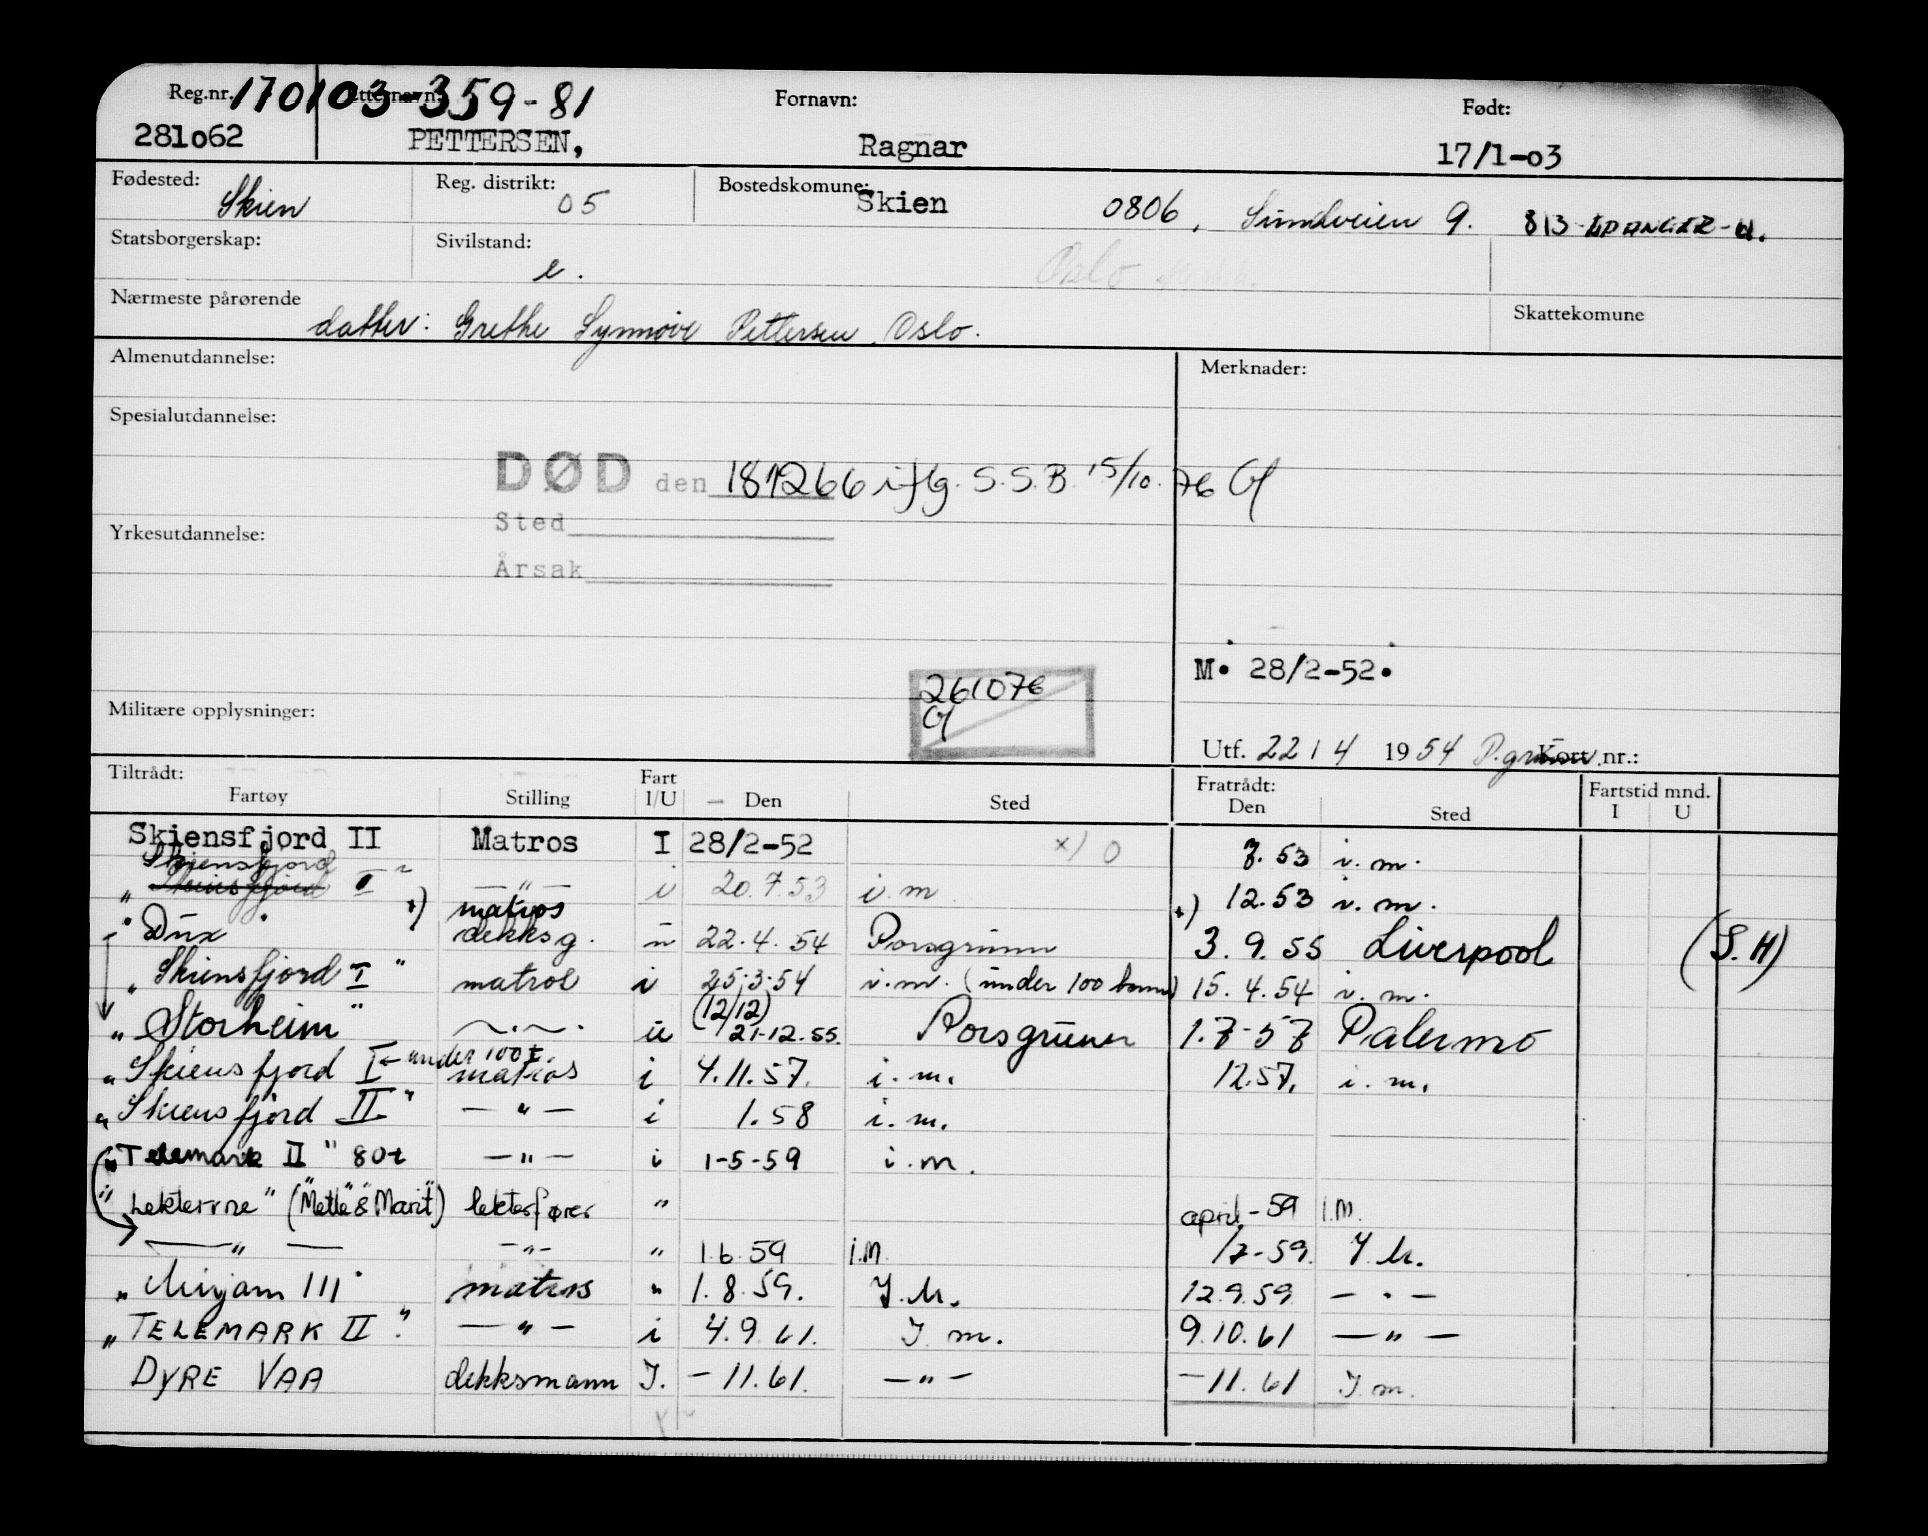 Reg.nr. 170103-359-81 Etternavn: Fornavn: Født:
281o62 PETTERSEN, Ragnar 17/1-o3
Fødested: Skien Reg. distrikt: 05 Bostedskomune: Skien 0806, Sundveien 9. 813 EIDANGER-H.
Statsborgerskap: Sivilstand: e. Oslo
Nærmeste pårørende datter: Grethe Synnøve Pettersen, Oslo. Skattekomune
Almenutdannelse: Merknader:
Spesialutdannelse:
DØD den 181266 iflg. S.S.B. 15/10.76
Sted
Yrkesutdannelse:
Årsak
M. 28/2-52.
261076
Militære opplysninger:
Utf. 22/4 1954 P.grunn Kort nr.:
Tiltrådt: Fart Fratrådt: Fartstid mnd.
Fartøy Stilling I/U Den Sted Den Sted I U
Skiensfjord II Matros I 28/2-52 x) 0 7.53 i.m.
Skiensfjord
" Skiensfjord II " — " — i 20.7.53 i.m 12.53 i.m.
" Dux " x) matros dekksg. u 22.4.54 Porsgrunn x) 3.9.55 Liverpool (S.H)
" Skiensfjord I " matros i 25.3.54 i.m. (under 100 tonn) 15.4.54 i.m.
" Storheim " — " — u (12/12) 21-12.55. Porsgrunn 1.7-57 Palermo
" Skiensfjord I ← under 100 t. matros i 4.11.57. i.m. 12.57. i.m.
" Skiensfjord II " — " — i 1.58 i.m.
" Telemark II " 80t — " — i 1-5-59 i.m.
" Lekterne " ("Mette" & "Marit") lekterfører " april-59 I.M.
— " — — " — " 1.6.59 I.M 1/7-59. I.M.
" Mirjam III " matros " 1.8.59. I.M. 12.9.59 — " —
" TELEMARK II " — " — i 4.9.61. I m. 9.10.61 — " —
DYRE VAA dekksmann I. -11.61. — " — -11.61 I m.